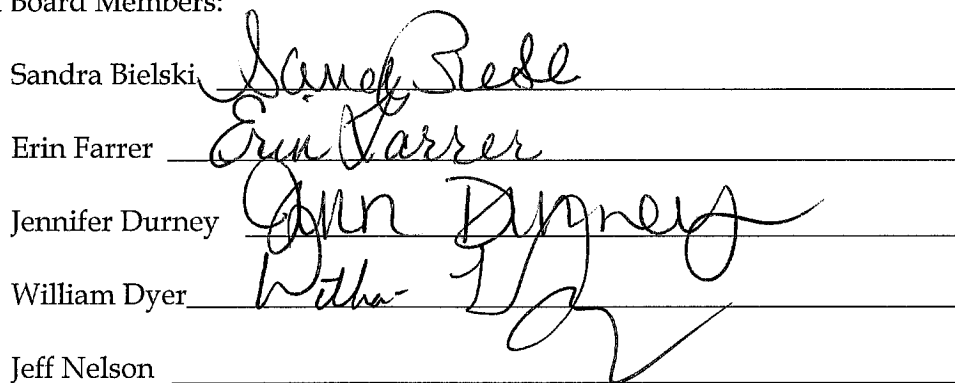 Board Members:
Sandra Bielski
Erin Farrer Erin Farrer
Jennifer Durney Jenn Durney
William Dyer
Jeff Nelson